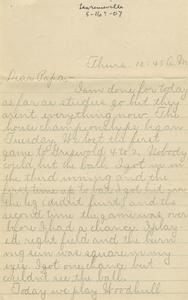 Lawrenceville
5-16-07
Thurs. 12:45 P.M
Dear Papa,-
I am done for today
as far as studies go but they
aren't everything now. The
house championships began
Tuesday. We lost the first
game to Griswold 4 to 2. Nobody
could hit the ball. I got in
the third inning and the
first time up to bat I got hit in
the leg (didn't hurt) and the
second time the game was over
before I had a chance. I play-
ed right field and the burn
ing sun was square in my
eyes. I got one chance but
couldn't see the ball.
Today we play Woodhull